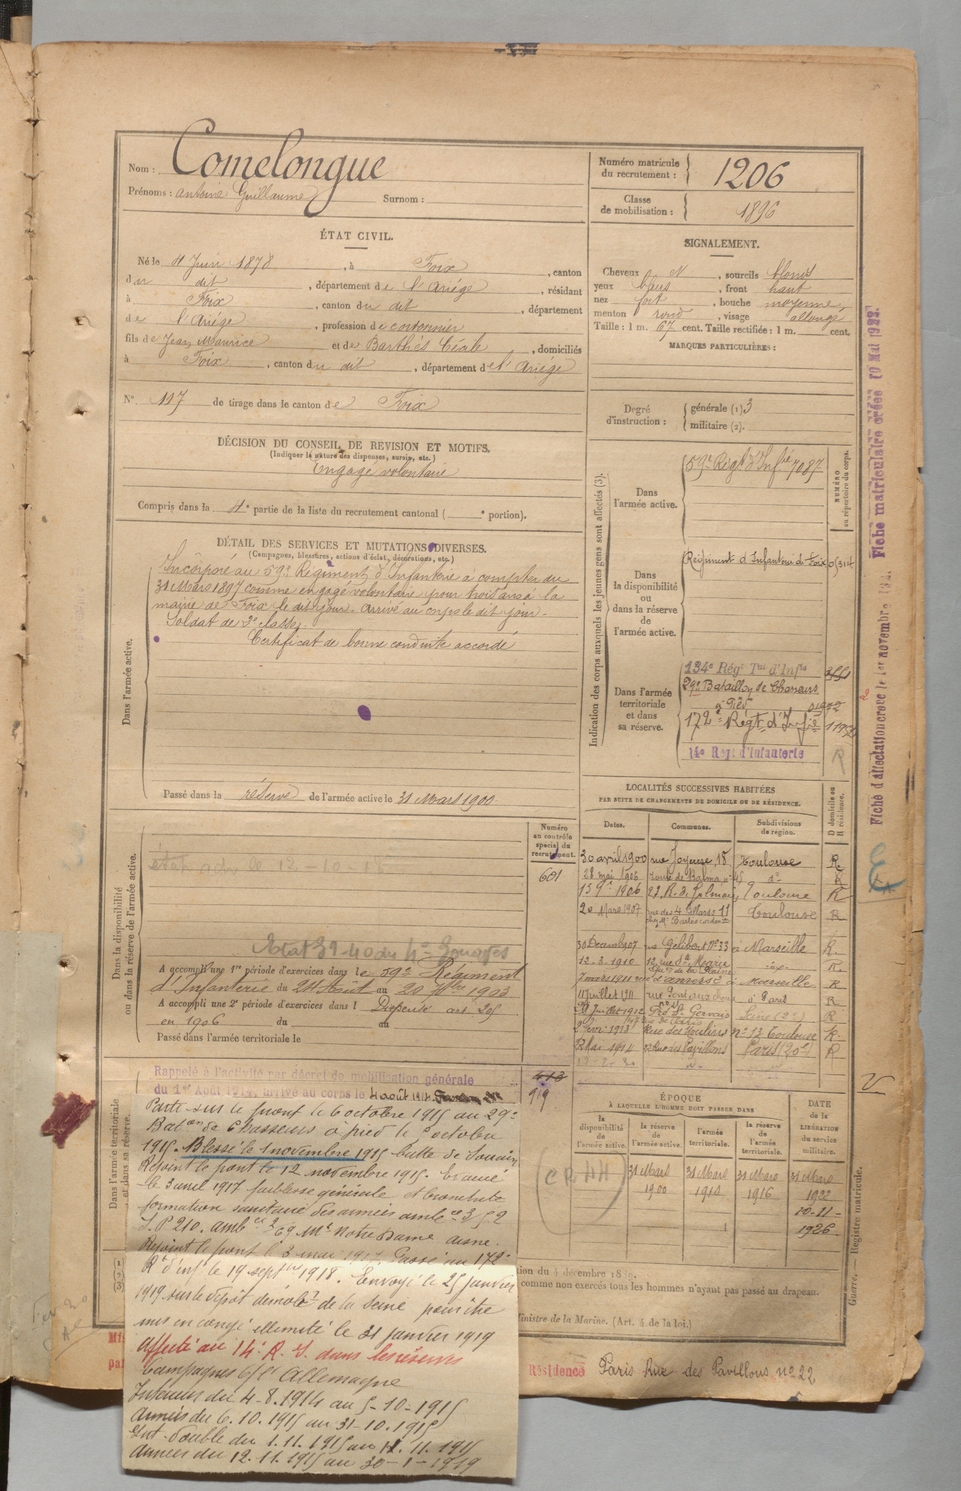 Nom : Comelongue
Prénoms : Antoine Guillaume Surnom :
Numéro matricule du recrutement : 1206
Classe de mobilisation : 1896
ÉTAT CIVIL.
Né le 11 Juin 1878, à Foix, canton
du dit, département de l'Ariége, résidant
à Foix, canton du dit, département
de l'Ariége, profession de cordonnier
fils de Jean Maurice et de Barthès Cécile, domiciliés
à Foix, canton du dit, département de l'Ariége
N° 117 de tirage dans le canton de Foix
SIGNALEMENT.
Cheveux N, sourcils blonds
yeux bleus, front haut
nez fort, bouche moyenne
menton rond, visage allongé
Taille : 1 m. 67 cent. Taille rectifiée : 1 m. cent.
MARQUES PARTICULIÈRES :
DÉCISION DU CONSEIL DE REVISION ET MOTIFS.
(Indiquer la nature des dispenses, sursis, etc.)
Engagé volontaire
Compris dans la 4e partie de la liste du recrutement cantonal ( e portion).
Degré d'instruction : générale (1) 3
militaire (2).
DÉTAIL DES SERVICES ET MUTATIONS DIVERSES.
(Campagnes, blessures, actions d'éclat, décorations, etc.)
Dans l'armée active.
Incorporé au 59e Régiment d'Infanterie à compter du
31 Mars 1897 comme engagé volontaire pour trois ans à la
mairie de Foix le dit jour. Arrivé au corps le dit jour.
Soldat de 2e classe.
Certificat de bonne conduite accordé
Passé dans la réserve de l'armée active le 31 Mars 1900
Indication des corps auxquels les jeunes gens sont affectés (3).
NUMÉRO au répertoire du corps.
Dans l'armée active.
59e Régt d'Infie 7087
Dans la disponibilité ou dans la réserve de l'armée active.
Régiment d'Infanterie de Foix
Dans l'armée territoriale et dans sa réserve.
134e Régt Tal d'Infie
29e Bataillon de Chasseurs
à Pied
172e Régt d'Infie
14e Regt d'Infanterie
R
LOCALITÉS SUCCESSIVES HABITÉES
PAR SUITE DE CHANGEMENTS DE DOMICILE OU DE RÉSIDENCE.
Dates. Communes. Subdivisions de région. D domicile ou R résidence.
30 avril 1900 rue Joyeuse, 15 Toulouse R
28 mai 1906 route de Balma do R
1906 Toulouse R
20 Mars 1907 rue des 4 Toulouse R
30 Décem 1907 rue Gelibert No 33 à Marseille R
12.2.1910 R
Marseille R
11 Juillet 1911 à Paris R
Juillet 1912 Pré St Gervais R
1913 Rue des Moulins no 13 Toulouse R
Mai 1914 22 Rue des Pavillons Paris (20e) R
Dans la disponibilité ou dans la réserve de l'armée active.
Numéro au contrôle spécial du recrutement.
601
A accompli une 1re période d'exercices dans le 59e Régiment
d'Infanterie du 24 Août au 20 7bre 1903
A accompli une 2e période d'exercices dans l Dispensé art 25
en 1906 du au
Passé dans l'armée territoriale le
Dans l'armée territoriale et dans sa réserve.
Rappelé à l'activité par décret de mobilisation générale
du 1er Août 1914, arrivé au corps le 4 août 1914
413
119
Parti sur le front le 6 octobre 1915 au 29e
Bataon de Chasseurs à pied le octobre
1915. Blessé le 1 novembre 1915 butte de Souain
Rejoint le front le 12 novembre 1915. Evacué
le 3 avril 1917 faiblesse générale et bronchite
formation sanitaire des armées ambce 3/52
S.P 210. ambce 2/69 Mt Notre Dame Aisne.
Rejoint le front le 3 mai 1917 Passé au 172e
Rt d'inf le 19 septbre 1918. Envoyé le 25 janvier
1919 sur le dépôt démobr de la Seine pour être
mis en congé illimité le 31 janvier 1919
Affecté au 14e R. I. dans les réserves
Campagnes c/ l'Allemagne
Intérieur du 4-8-1914 au 5-10-1915
Armées du 6.10.1915 au 31-10.1915
Cnt double du 1.11.1915 au 11.11.1915
Armées du 12.11.1915 au 30-1-1919
ÉPOQUE
À LAQUELLE L'HOMME DOIT PASSER DANS
la disponibilité de l'armée active. la réserve de l'armée active. l'armée territoriale. la réserve de l'armée territoriale. DATE de la LIBÉRATION du service militaire.
31 Mars 1900 31 Mars 1910 31 Mars 1916 31 Mars 1922
10-11-1926
comme non exercés tous les hommes n'ayant pas passé au drapeau.
Ministre de la Marine. (Art. 4 de la loi.)
Guerre. — Registre matricule.
Résidence Paris Rue des Pavillons no 22
Fiche matriculaire créée 10 Mai 1922.
Fiche d'affectation créée le 1er novembre 192